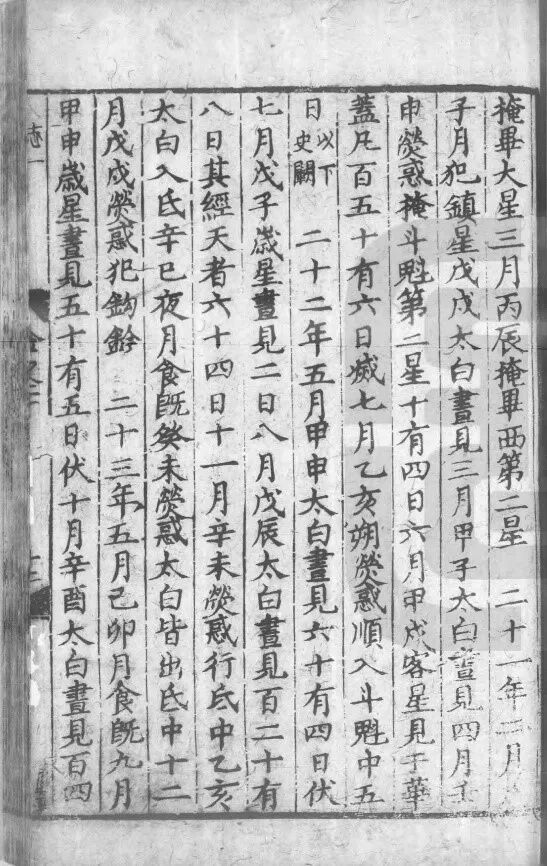 掩畢大星三月丙辰掩畢西第二星　二十一年二月
子月犯鎮星戊戌太白晝見三月甲子太白晝見四月壬
申熒惑掩斗魁第二星十有四日六月甲戌客星見于華
蓋凡百五十有六日滅七月乙亥朔熒惑順入斗魁中五
日以下史闕　二十二年五月甲申太白晝見六十有四日伏
七月戊子歲星晝見二日八月戊辰太白晝見百二十有
八日其經天者六十四日十一月辛未熒惑行氐中乙亥
太白入氐辛巳夜月食旣癸未熒惑太白皆出氐中十二
月戊戌熒惑犯鉤鈐　二十三年五月己卯月食旣九月
甲申歲星晝見五十有五日伏十月辛酉太白晝見百四
志一